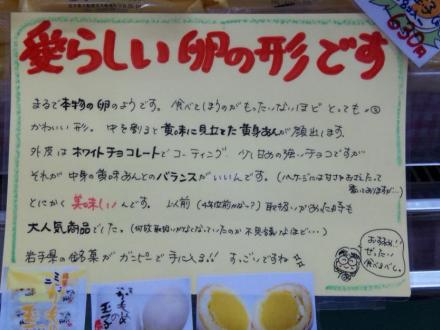 愛らしい卵の形です
まるで本物の卵のようです。食べてしまうのがもったいないほど とっても
かわいい形。中を割ると黄味に見立てた黄身あんが顔出します。
外皮はホワイトチョコレートでコーティング。少し甘めの強いチョコですが
それが中身の黄味あんとのバランスがいいんです。(パッケージには甘さおさえたって
書いてありますが…)
とにかく美味しいんです。以前(4年位前かな?)取扱いがあった時も
大人気商品でした。(何故取扱いがなくなっていたのか不思議なほど…)
岩手県の銘菓がガンピーで手に入る!! すっごいですね
おすすめ!!
ぜったい
食べるべし。
かもめの
玉子
650円